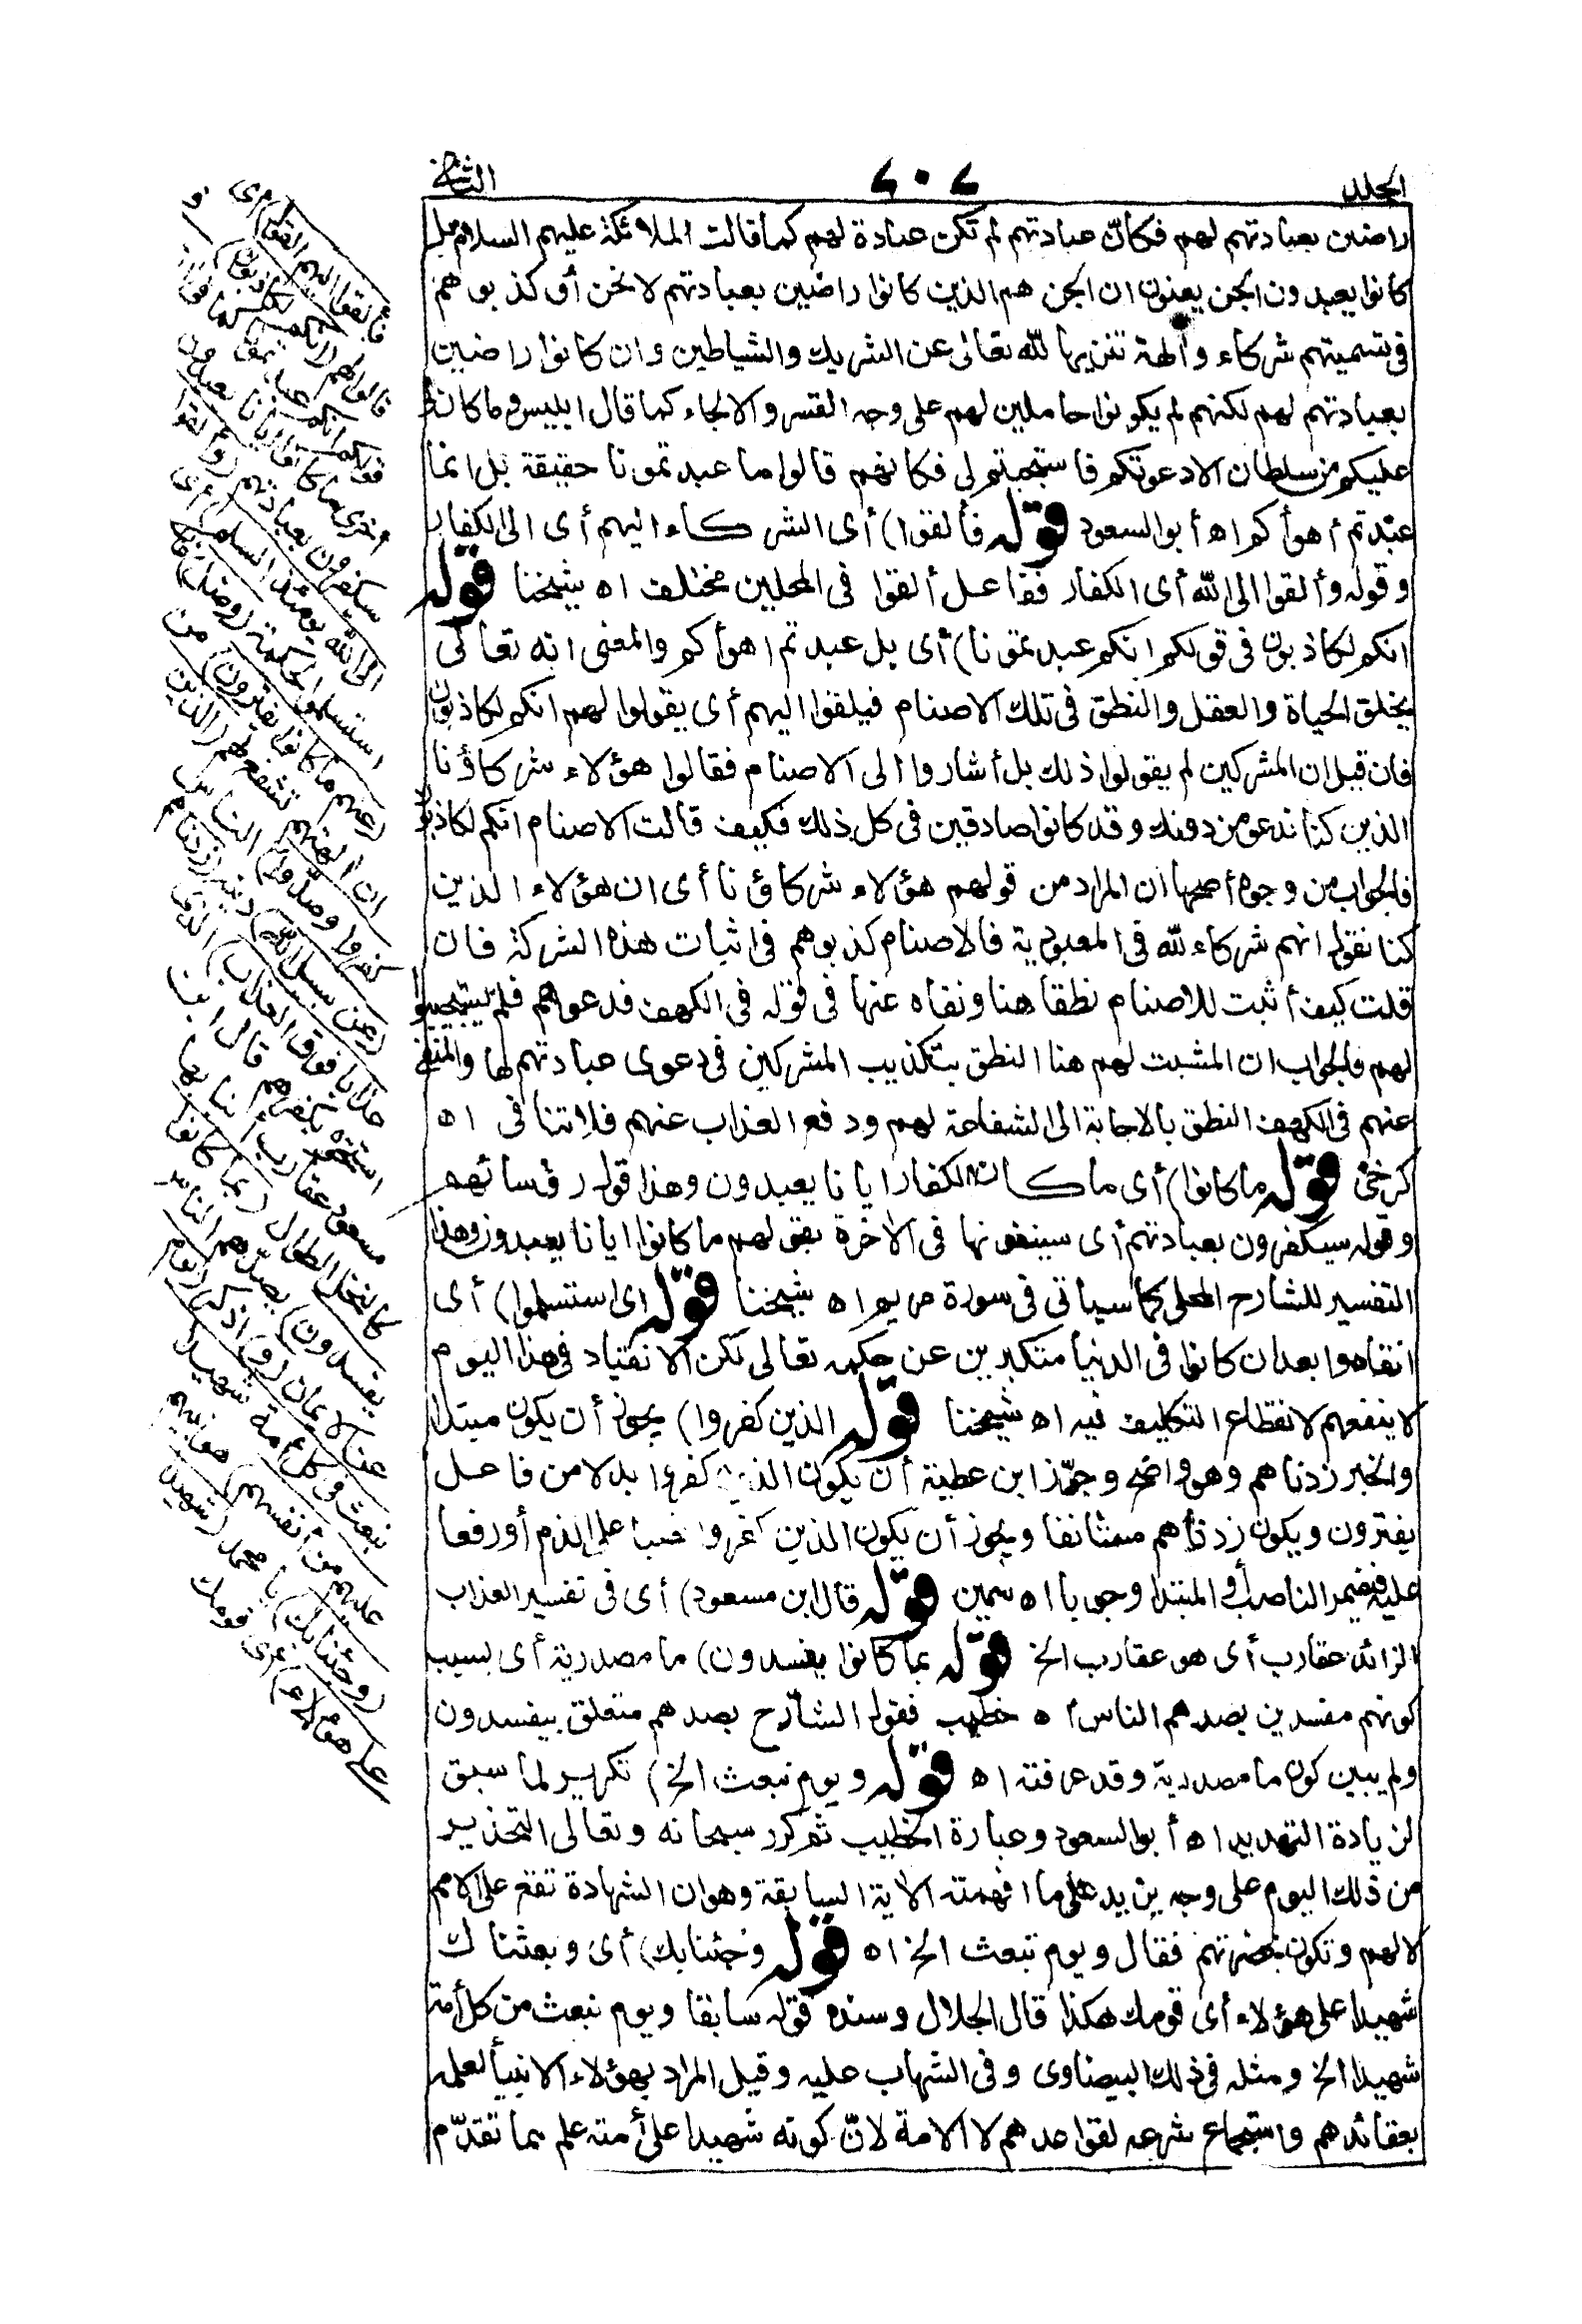 المجلد
٢٠٢
الثانى
راضين بعبادتهم لهم فكأنّ عبادتهم لم تكن عبادة لهم كما قالت الملائكة عليهم السلام بل
كانوا يعبدون الجن يعنون ان الجن هم الذين كانوا راضين بعبادتهم لا نحن أو كذبوهم
فى تسميتهم شركاء وآلهة تنزيها لله تعالى عن الشريك والشياطين وان كانوا راضين
بعبادتهم لهم لكنهم لم يكونوا حاملين لهم على وجه القسر والالجاء كما قال ابليس وما كان لى
عليكم من سلطان الا دعوتكم فاستجبتم لى فكانهم قالوا ما عبدتمونا حقيقة بل انما
عبدتم أهوأكم اه أبو السعود قوله فألقوا) أى الشركاء اليهم أى الى الكفار
وقوله وألقوا الى الله أى الكفار ففاعل ألقوا فى المحلين مختلف اه شيخنا قوله
انكم لكاذبون فى قولكم انكم عبدتمونا) أى بل عبدتم اهوأكم والمعنى انه تعالى
يخلق الحياة والعقل والنطق فى تلك الاصنام فيلقوا اليهم أى يقولوا لهم انكم لكاذبون
فان قيل ان المشركين لم يقولوا ذلك بل أشاروا الى الاصنام فقالوا هؤلاء شركاؤنا
الذين كنا ندعو من دونك وقد كانوا صادقين فى كل ذلك فكيف قالت الاصنام انكم لكاذبون
فالجواب من وجوه أصحها ان المراد من قولهم هؤلاء شركاؤنا أى ان هؤلاء الذين
كنا نقول انهم شركاء لله فى المعبودية فالاصنام كذبوهم فى اثبات هذه الشركة فان
قلت كيف أثبت للاصنام نطقا هنا ونفاه عنها فى قوله فى الكهف فدعوهم فلم يستجيبوا
لهم فالجواب ان المثبت لهم هنا النطق بتكذيب المشركين فى دعوى عبادتهم لها والمنفى
عنهم فى الكهف النطق بالاجابة الى الشفاعة لهم ودفع العذاب عنهم فلا تنافى اه
كرخى قوله ما كانوا) أى ما كان الكفار ايانا يعبدون وهذا قول رؤسائهم
وقوله سيكفرون بعبادتهم أى سينفونها فى الآخرة بقولهم ما كانوا ايانا يعبدون وهذا
التفسير للشارح المحلى كما سيأتى فى سورة مريم اه شيخنا قوله اى استسلموا) أى
انقادوا بعد ان كانوا فى الدنيا متكبرين عن حكمه تعالى لكن الانقياد فى هذا اليوم
لا ينفعهم لانقطاع التكليف فيه اه شيخنا قوله الذين كفروا) يجوز أن يكون مبتدا
والخبر زدناهم وهو واضح وجوّز ابن عطية أن يكون الذين كفروا بدلا من فاعل
يفترون ويكون زدناهم مستأنفا ويجوز أن يكون الذين كفروا نصبا على الذم أو رفعا
عليه فيضمر الناصب أو المبتدا وجوبا اه سمين قوله قال ابن مسعود) أى فى تفسير العذاب
الزائد عقارب أى هو عقارب الخ قوله بما كانوا يفسدون) ما مصدرية أى بسبب
كونهم مفسدين بصدهم الناس اه خطيب فقول الشارح بصدهم متعلق بيفسدون
ولم يبين كون ما مصدرية وقد عرفته اه قوله ويوم نبعث الخ) تكرير لما سبق
لزيادة التهديد اه أبو السعود وعبارة الخطيب ثم كرر سبحانه وتعالى التحذير
من ذلك اليوم على وجه يزيد على ما افهمته الآية السابقة وهو ان الشهادة تقع على الامم
لا لهم وتكون بحضرتهم فقال ويوم نبعث الخ اه قوله وجئنا بك) أى وبعثناك
شهيدا على هؤلاء أى قومك هكذا قال الجلال وسنده قوله سابقا ويوم نبعث من كل أمة
شهيدا الخ ومثله فى ذلك البيضاوى وفى الشهاب عليه وقيل المراد بهؤلاء الانبيأ لعلمه
بعقائدهم واستجماع شرعه لقواعدهم لا الامة لانّ كونه شهيدا على أمته علم مما تقدّم
فألقوا اليهم القول) أى
قالوا لهم (انكم لكاذبون) فى
قولكم انكم عبدتمونا كما فى آية
أخرى ما كانوا ايانا يعبدون
سيكفرون بعبادتهم (وألقوا
الى الله يومئذ السلم) أى
استسلموا لحكمه (وضل) غاب
(عنهم ما كانوا يفترون) من
ان آلهتهم تشفع لهم (الذين
كفروا وصدّوا) الناس
(عن سبيل الله) دينه (زدناهم
عذابا فوق العذاب) الذى
استحقوه بكفرهم قال ابن
مسعود عقارب أنيابها
كالنخل الطوال (بما كانوا
يفسدون) بصدهم الناس
عن الايمان (و) اذكر (يوم
نبعث فى كل أمة شهيدا
عليهم من أنفسهم) هو نبيهم
(وجئنا بك) يا محمد (شهيدا
على هؤلاء) أى قومك